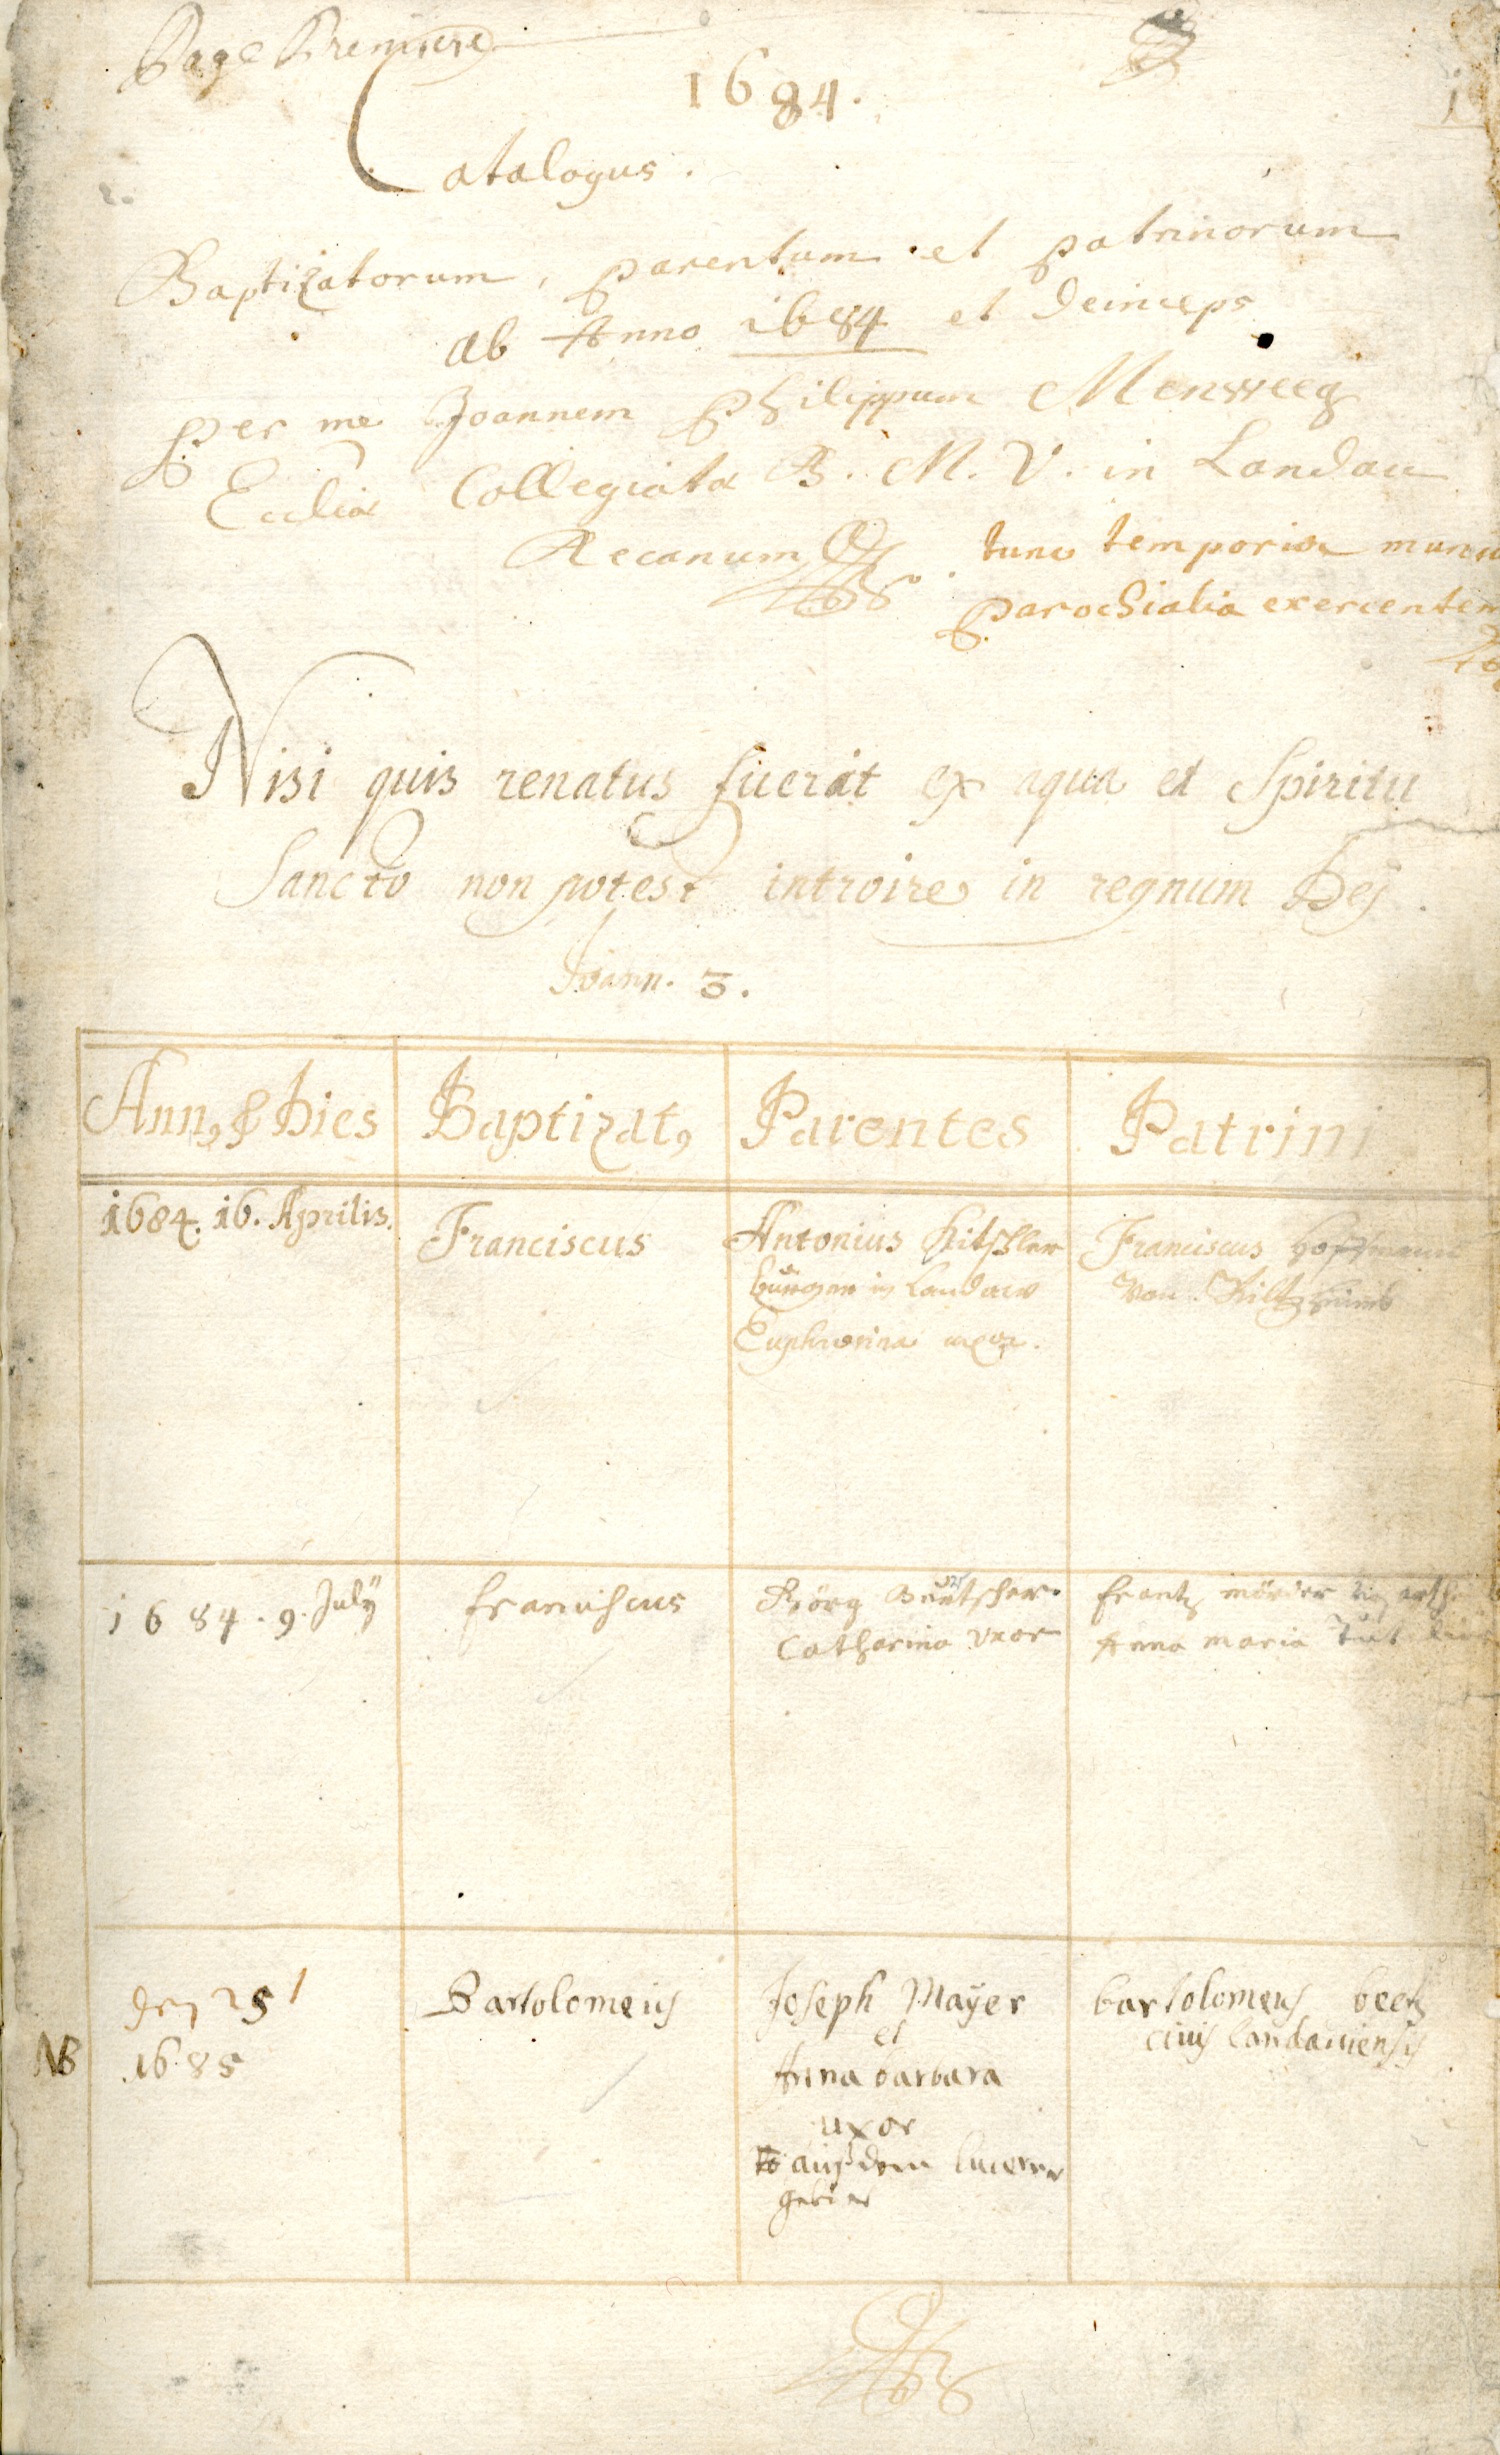 Page Premiere
1684.
1
Catalogus.
Baptizatorum, parentum et patrinorum
ab Anno 1684 et deinceps
per me Joannem Philippum Mensweeg
Eccliæ Collegiatæ B. M. V. in Landau
Decanum tunc temporis munia
parochialia exercentem
Nisi quis renatus fuerit ex aqua et Spiritu
Sancto non potest introire in regnum Dej.
Joann. 3.
Ann9 & Dies Baptizat9 Parentes Patrini
1684. 16. Aprilis. Franciscus Antonius Franciscus Hoffmann
burger in Landaw Von
Euphrosina uxor.
1684. 9. July franciscus Görg frantz
Catharina Vxor Anna maria
den 25 Bartolomeus Joseph Mayer bartolomeus beck
et civis landaviensis
NB 1685 Anna barbara
uxor
aus dem lucerner
gebiet